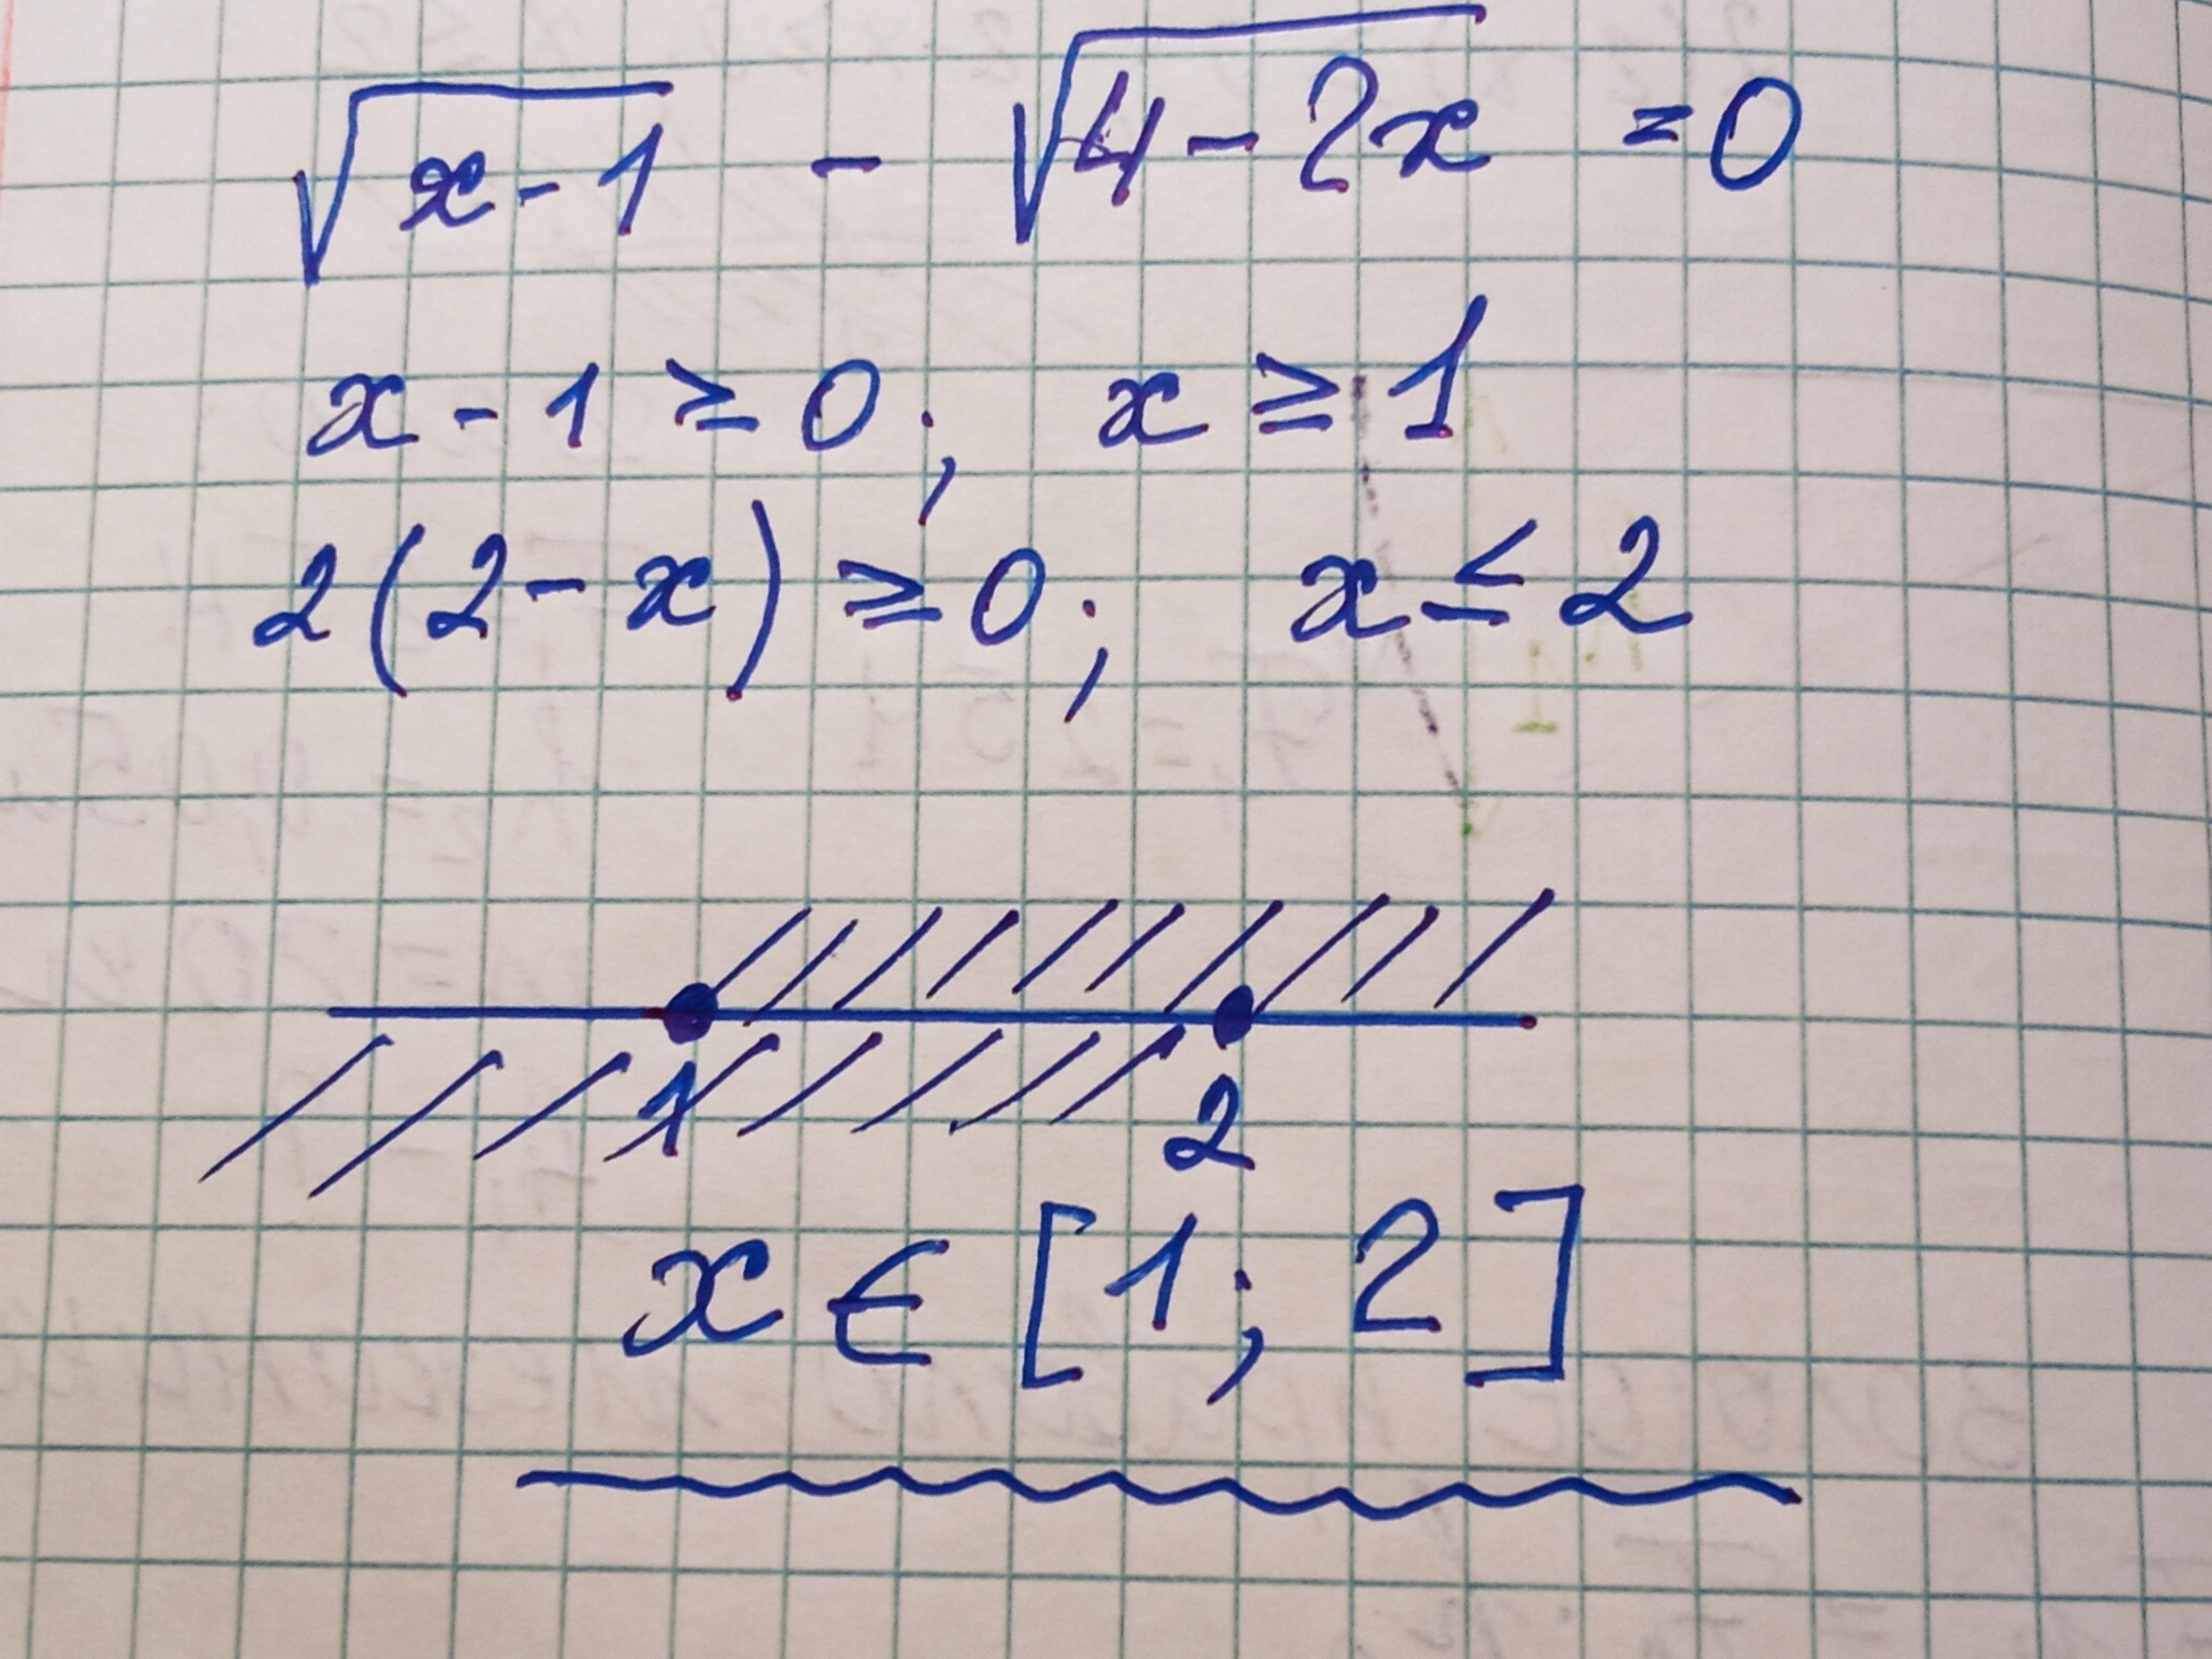 √(x-1) - √(4-2x) =0
x-1≥0; x≥1
2(2-x)≥0; x≤2
1 2
x∈[1; 2]